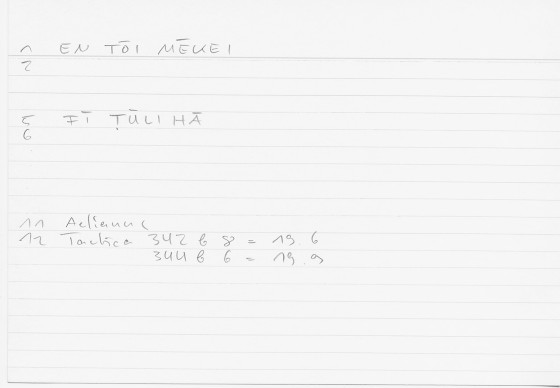 1 EN TŌI MĒKEI
2
5 FĪ ṬŪLIHĀ
6
11 Aelianus
12 Tactica 342 b 8 = 19 6
344 b 6 = 19.9